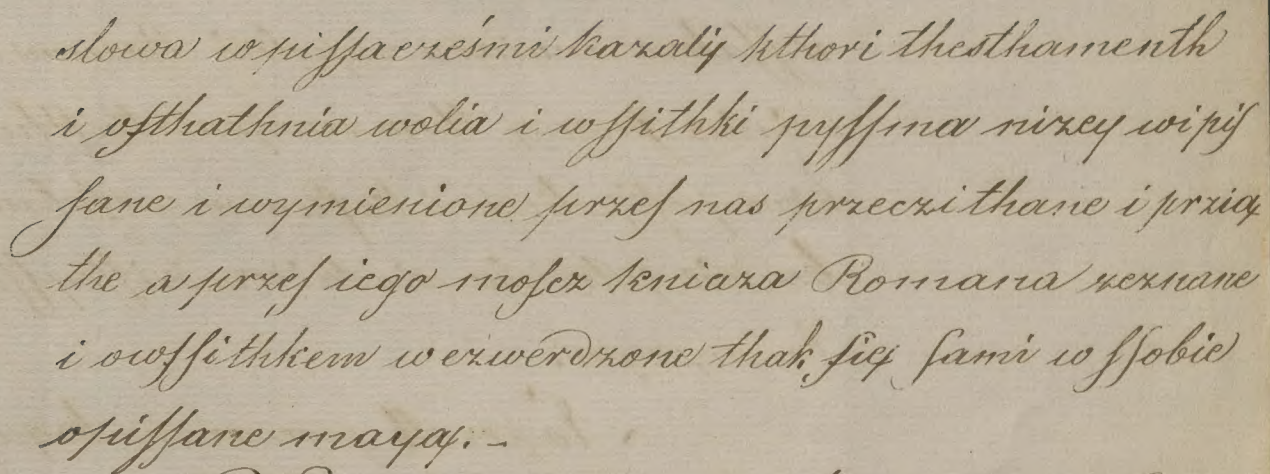 slowa wpiſſacześmi kazalÿ kthori thesthamenth
i oſthathnia wolia i wſſithki pyſſma nizey wipiſ
ſane i wymienione przeſ nas przeczithane i przią
the a przeſ iego moſcz kniaza Romana zeznane
i owſſithkem w czwerdzone thak ſię ſami w ſſobie
opiſſane mayą. –